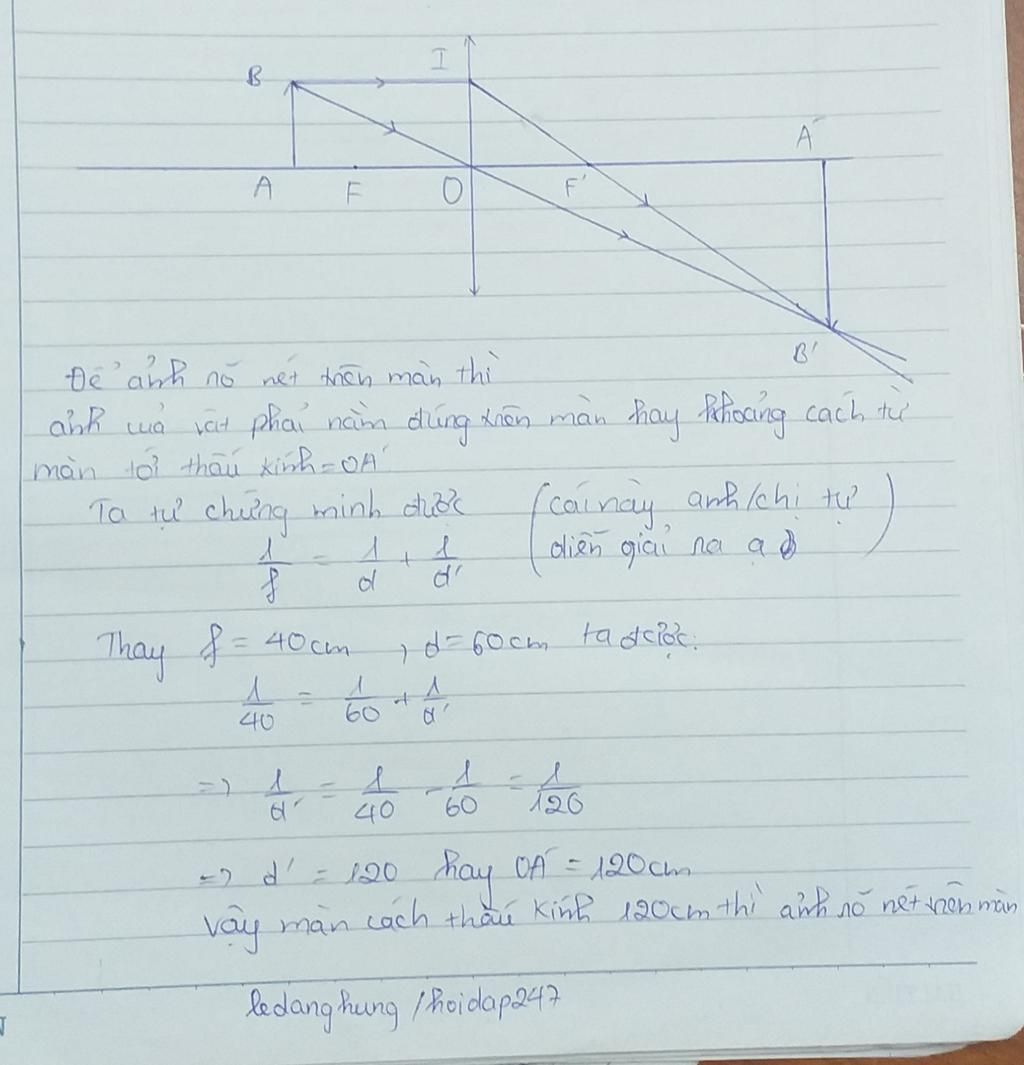 B I A'
A F O F'
B'
Để ảnh rõ nét trên màn thì
ảnh của vật phải nằm đúng trên màn hay khoảng cách từ
màn tới thấu kính = OA'
Ta tự chứng minh được (cái này anh/chị tự
1/f = 1/d + 1/d' diễn giải na ạ)
Thay f = 40cm, d = 60cm ta được:
1/40 = 1/60 + 1/d'
=> 1/d' = 1/40 - 1/60 = 1/120
=> d' = 120 hay OA' = 120cm
Vậy màn cách thấu kính 120cm thì ảnh rõ nét trên màn
ledanghung/hoidap247